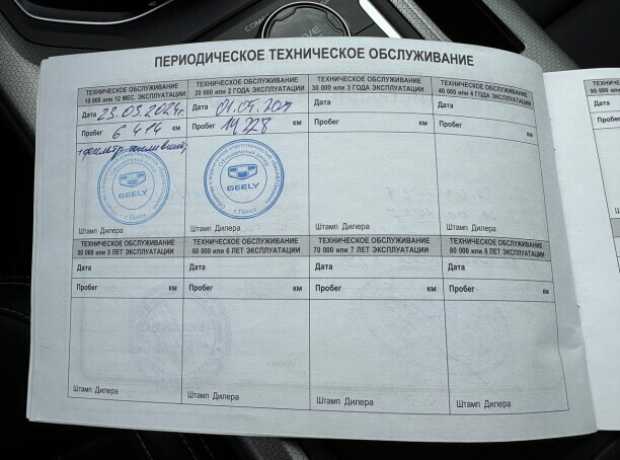 ПЕРИОДИЧЕСКОЕ ТЕХНИЧЕСКОЕ ОБСЛУЖИВАНИЕ
ТЕХНИЧЕСКОЕ ОБСЛУЖИВАНИЕ
10 000 или 12 МЕС. ЭКСПЛУАТАЦИИ
Дата 23.05.2024г.
Пробег 6 414 км
GEELY
Штамп Дилера
ТЕХНИЧЕСКОЕ ОБСЛУЖИВАНИЕ
20 000 или 2 ГОДА ЭКСПЛУАТАЦИИ
Дата
Пробег км
GEELY
Штамп Дилера
ТЕХНИЧЕСКОЕ ОБСЛУЖИВАНИЕ
30 000 или 3 ГОДА ЭКСПЛУАТАЦИИ
Дата
Пробег км
Штамп Дилера
ТЕХНИЧЕСКОЕ ОБСЛУЖИВАНИЕ
40 000 или 4 ГОДА ЭКСПЛУАТАЦИИ
Дата
Пробег км
Штамп Дилера
ТЕХНИЧЕСКОЕ ОБСЛУЖИВАНИЕ
50 000 или 5 ЛЕТ ЭКСПЛУАТАЦИИ
Дата
Пробег км
Штамп Дилера
ТЕХНИЧЕСКОЕ ОБСЛУЖИВАНИЕ
60 000 или 6 ЛЕТ ЭКСПЛУАТАЦИИ
Дата
Пробег км
Штамп Дилера
ТЕХНИЧЕСКОЕ ОБСЛУЖИВАНИЕ
70 000 или 7 ЛЕТ ЭКСПЛУАТАЦИИ
Дата
Пробег км
Штамп Дилера
ТЕХНИЧЕСКОЕ ОБСЛУЖИВАНИЕ
80 000 или 8 ЛЕТ ЭКСПЛУАТАЦИИ
Дата
Пробег км
Штамп Дилера